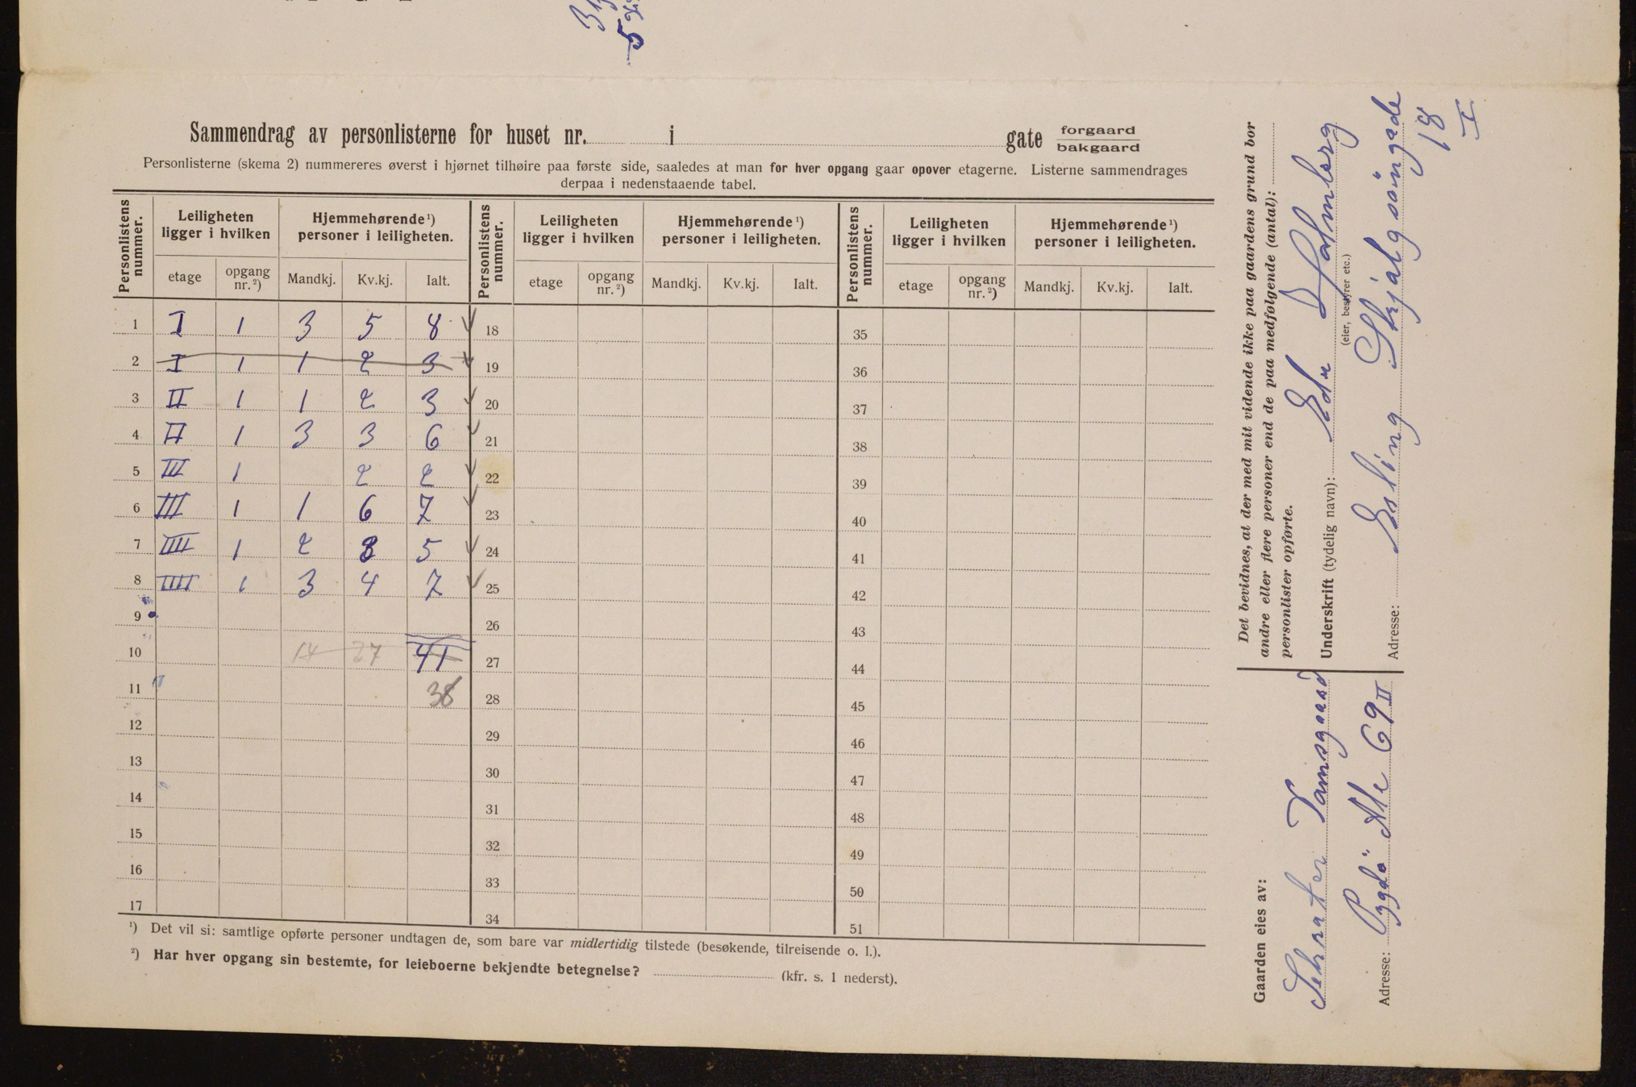 Sammendrag av personlisterne for huset nr. i gate forgaard bakgaard
Personlisterne (skema 2) nummereres øverst i hjørnet tilhøire paa første side, saaledes at man for hver opgang gaar opover etagerne. Listerne sammendrages
derpaa i nedenstaaende tabel.
Personlistens nummer. Leiligheten ligger i hvilken Hjemmehørende ¹) personer i leiligheten. Personlistens nummer. Leiligheten ligger i hvilken Hjemmehørende ¹) personer i leiligheten. Personlistens nummer. Leiligheten ligger i hvilken Hjemmehørende ¹) personer i leiligheten.
etage opgang nr. ²) Mandkj. Kv.kj. Ialt. etage opgang nr. ²) Mandkj. Kv.kj. Ialt. etage opgang nr. ²) Mandkj. Kv.kj. Ialt.
1 I 1 3 5 8 18 35
2 I 1 1 2 3 19 36
3 II 1 1 2 3 20 37
4 II 1 3 3 6 21 38
5 III 1 2 2 22 39
6 III 1 1 6 7 23 40
7 IIII 1 2 3 5 24 41
8 IIII 1 3 4 7 25 42
9 26 43
10 14 27 41 27 44
11 38 28 45
12 29 46
13 30 47
14 31 48
15 32 49
16 33 50
17 34 51
¹) Det vil si: samtlige opførte personer undtagen de, som bare var midlertidig tilstede (besøkende, tilreisende o. l.).
²) Har hver opgang sin bestemte, for leieboerne bekjendte betegnelse? (kfr. s. 1 nederst).
Det bevidnes, at der med mit vidende ikke paa gaardens grund bor
andre eller flere personer end de paa medfølgende (antal):
personlister opførte.
Underskrift (tydelig navn): Holmberg
(eier, bestyrer etc.)
Adresse: Erling Skjalgsöngade
18
I
Gaarden eies av:
Adresse: Bygdö Alle 69 II